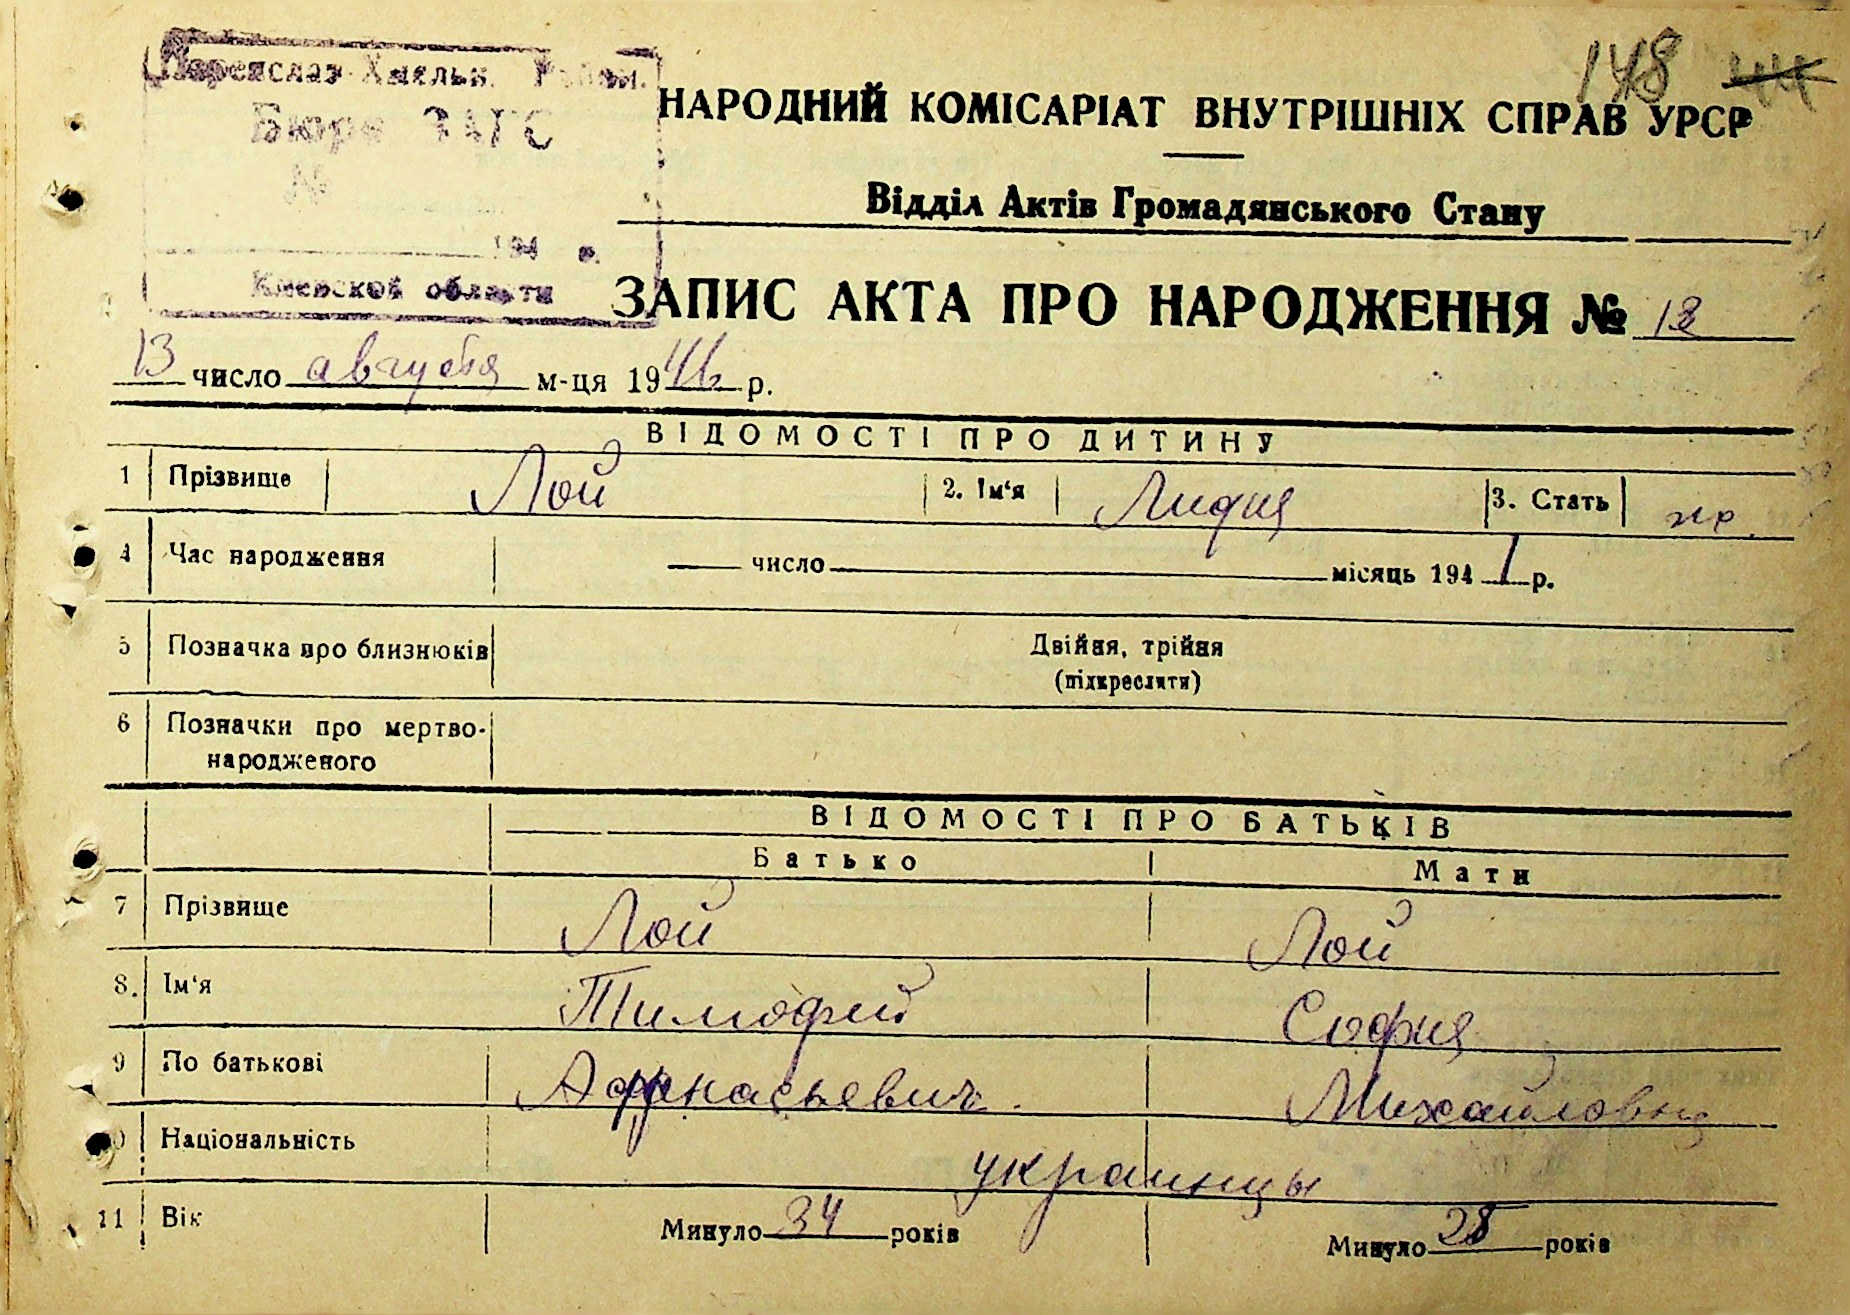 148 44
Переяслав-Хмельн. Район.
Бюро ЗАГС
№
194 г.
Киевской области
НАРОДНИЙ КОМІСАРІАТ ВНУТРІШНІХ СПРАВ УРСР
Відділ Актів Громадянського Стану
ЗАПИС АКТА ПРО НАРОДЖЕННЯ № 13
13 число августа м-ця 1946 р.
ВІДОМОСТІ ПРО ДИТИНУ
1 Прізвище Лой 2. Ім'я Лидия 3. Стать ж
4 Час народження число місяць 1941 р.
5 Позначка про близнюків Двійня, трійня
(підкреслити)
6 Позначки про мертво-
народженого
ВІДОМОСТІ ПРО БАТЬКІВ
Батько Мати
7 Прізвище Лой Лой
8. Ім'я Тимофей София
9 По батькові Афанасьевич. Михайловна
Національність украинцы
11 Вік Минуло 34 років Минуло 28 років